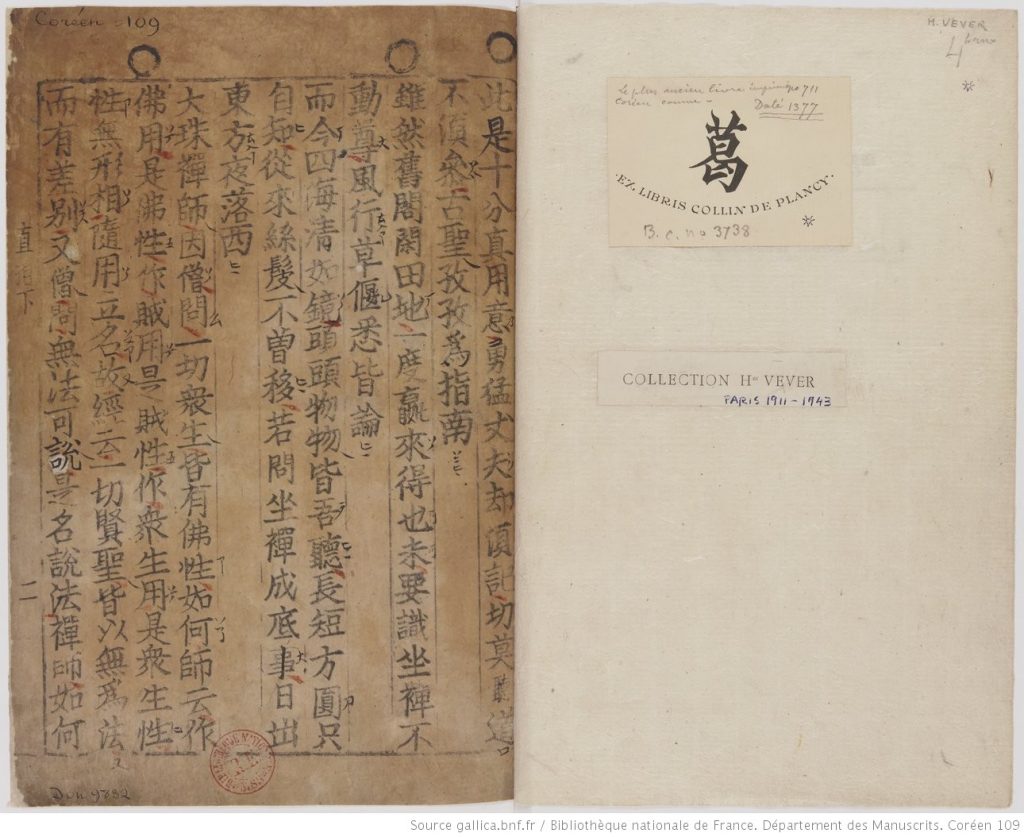 Coréen 109
此是十分真用意勇猛丈夫却須記切莫聽道
不須參古聖孜孜爲指南
雖然舊閣閑田地一度贏來得也未要識坐禪不
動尊風行草偃悉皆論
而今四海清如鏡頭頭物物皆吾聽長短方圓只
自知從來絲髮不曾移若問坐禪成底事日出
東方夜落西
大珠禪師因僧問一切衆生皆有佛性如何師云作
佛用是佛性作賊用是賊性作衆生用是衆生性
性無形相隨用立名故經云一切賢聖皆以無爲法
而有差別又僧問無法可說是名說法禪師如何
直指下
二
Don 9832
H. VEVER
Le plus ancien livre imprimé
Coréen connu
711
Daté 1377
葛
EX LIBRIS COLLIN DE PLANCY
B. C. no 3738
COLLECTION Hri VEVER
PARIS 1911-1943
Source gallica.bnf.fr / Bibliothèque nationale de France. Département des Manuscrits. Coréen 109